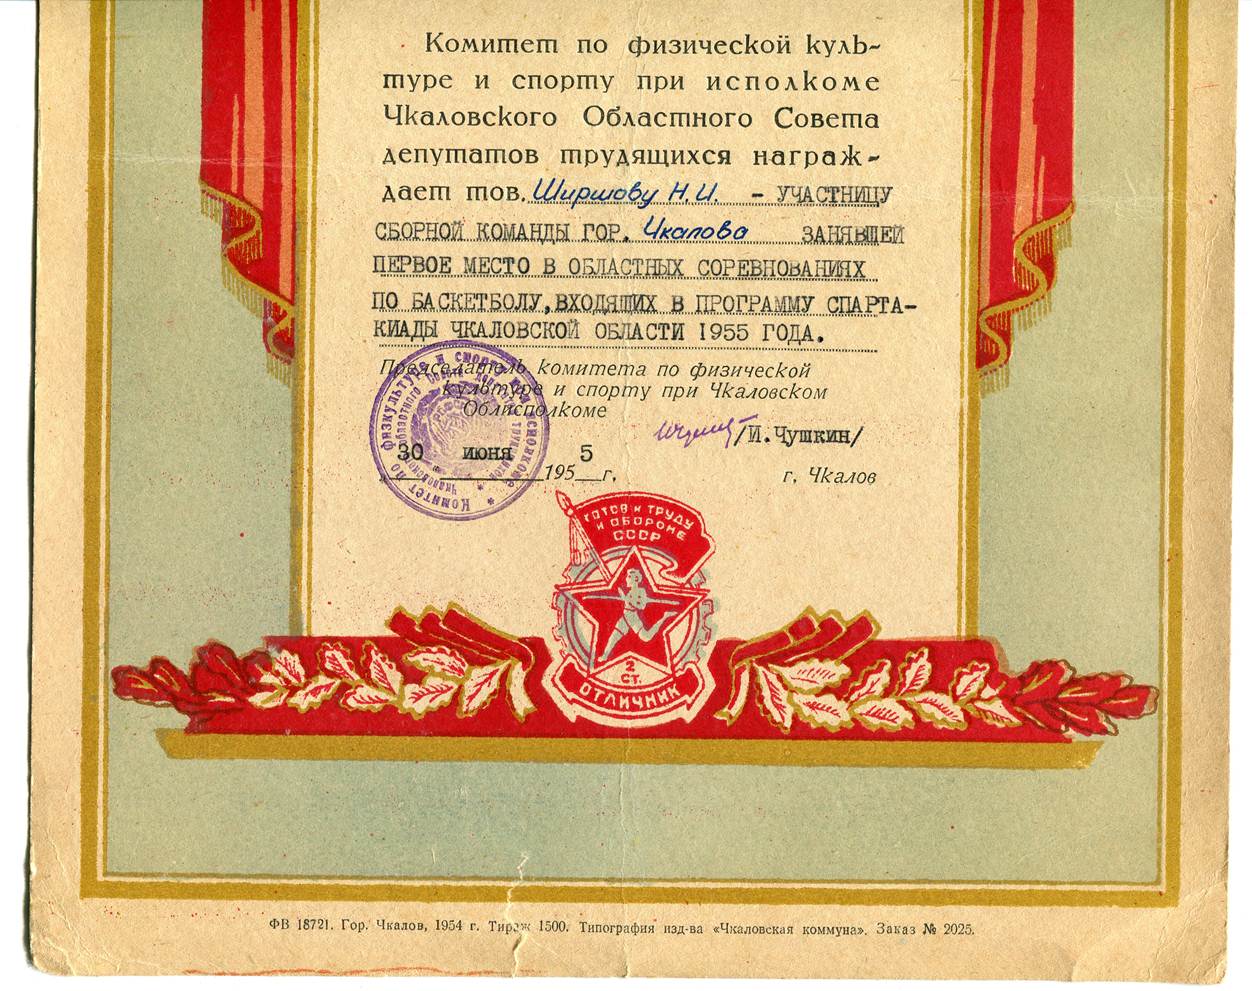 Комитет по физической куль-
туре и спорту при исполкоме
Чкаловского Областного Совета
депутатов трудящихся награж-
дает тов. Ширшову Н.И. - УЧАСТНИЦУ
СБОРНОЙ КОМАНДЫ ГОР. Чкалова ЗАНЯВШЕЙ
ПЕРВОЕ МЕСТО В ОБЛАСТНЫХ СОРЕВНОВАНИЯХ
ПО БАСКЕТБОЛУ, ВХОДЯЩИХ В ПРОГРАММУ СПАРТА-
КИАДЫ ЧКАЛОВСКОЙ ОБЛАСТИ 1955 ГОДА.
Председатель комитета по физической
культуре и спорту при Чкаловском
Облисполкоме
/И.Чушкин/
30 июня 1955 г.
г. Чкалов
Комитет по физкультуре и спорту при исполкоме
Чкаловского областного Совета депутатов трудящихся
РСФСР
ГОТОВ К ТРУДУ
И ОБОРОНЕ
СССР
2
СТ.
ОТЛИЧНИК
ФВ 18721. Гор. Чкалов, 1954 г. Тираж 1500. Типография изд-ва «Чкаловская коммуна». Заказ № 2025.